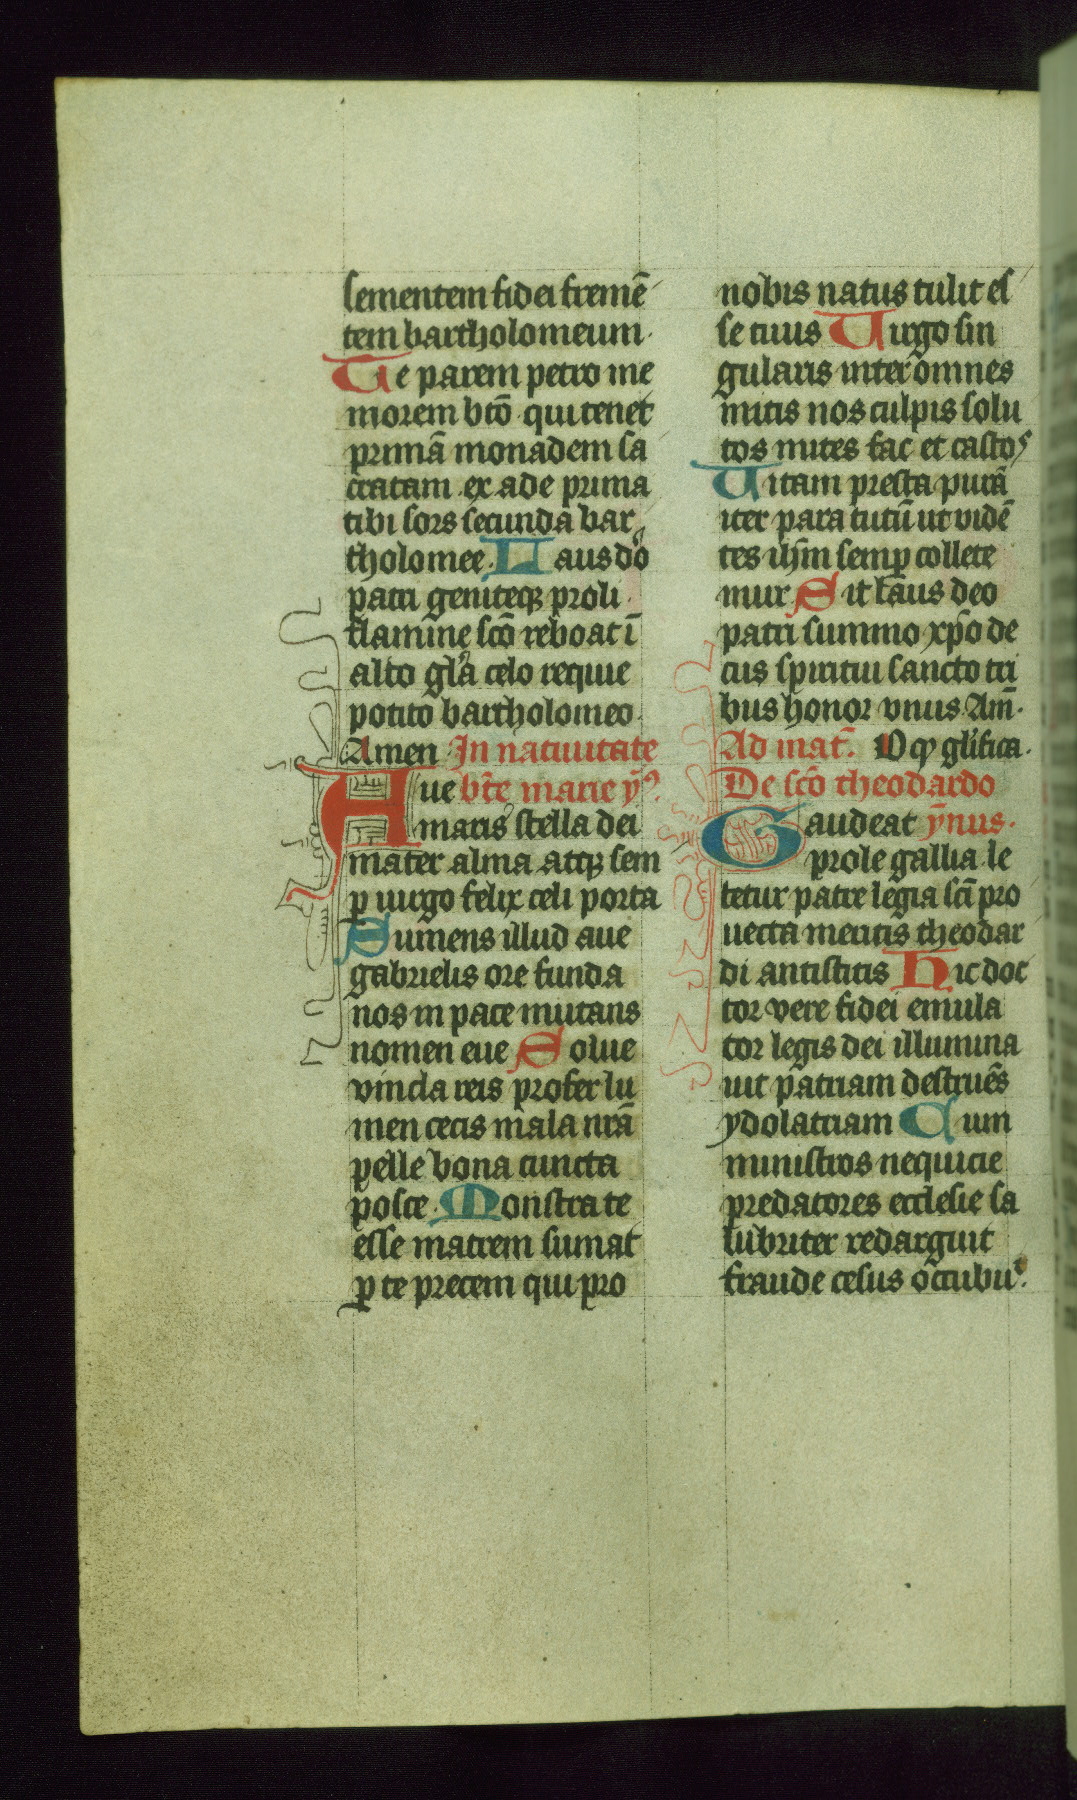 sementem fidei fremē
tem bartholomeum.
Te parem petro me
morem btō qui tenet
primā monadem sa
cratam ex ade prima
tibi sors secunda bar
tholomee. Laus dō
patri genitęq; proli
flamine scō reboat ī
alto gl̄a celo requie
potito bartholomeo.
Amen In natiuitate
Aue btē marie ȳꝰ.
maris stella dei
mater alma atq; sem
ꝑ uirgo felix celi porta
Sumens illud aue
gabrielis ore funda
nos in pace mutans
nomen eue Solue
vincla reis profer lu
men cecis mala nrā
pelle bona cuncta
posce. Monstra te
esse matrem sumat
ꝑ te precem qui pro
nobis natus tulit es
se tuus Uirgo sin
gularis inter omnes
mitis nos culpis solu
tos mites fac et castos
Uitam presta purā
iter para tutū ut vidē
tes ihm̄ semꝑ collete
mur Sit laus deo
patri summo xp̄o de
cus spiritui sancto tri
bus honor vnus Am̄.
Ad mat̄. O qͣ glifica.
De scō theodardo
Gaudeat ȳnus.
prole gallia le
tetur patre legia scī pro
uecta meritis theodar
di antistitis Hic doc
tor vere fidei emula
tor legis dei illumina
uit patriam destruēs
ydolatriam Cum
ministros nequicie
predatores ecclesie sa
lubriter redarguit
fraude cesus occubuᵗ.